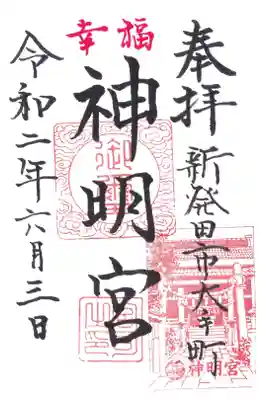 奉拝
新発田市大手町
幸福
神明宮
令和二年六月三日
神明宮